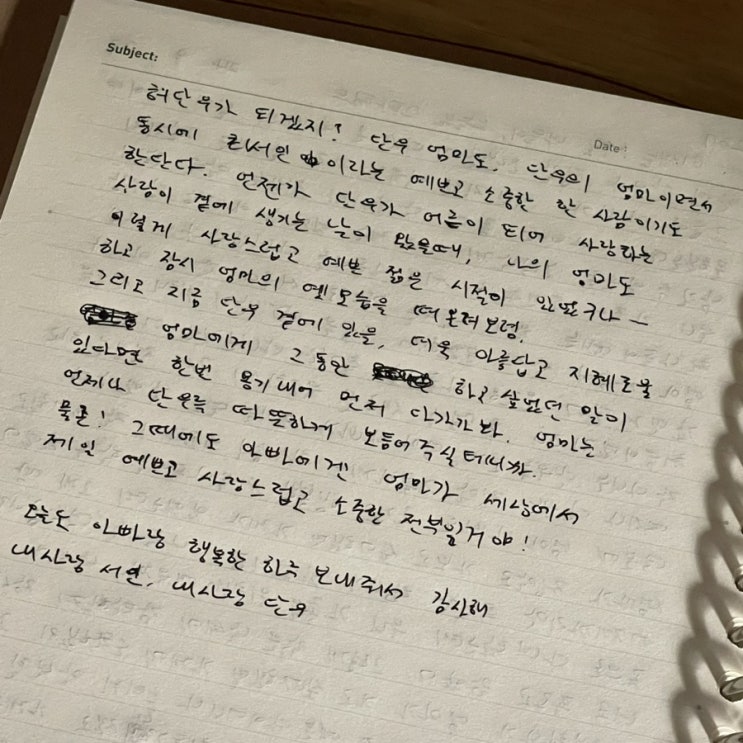 Subject:
Date :
허단우가 되겠지? 단우 엄마도, 단우의 엄마이면서
동시에 이라는 예쁘고 소중한 한 사람이기도
한단다. 언젠가 단우가 어른이 되어 사랑하는
사람이 곁에 생기는 날이 왔을때, 나의 엄마도
이렇게 사랑스럽고 예쁜 젊은 시절이 있었구나 ~
하고 잠시 엄마의 옛모습을 떠올려보렴.
그리고 지금 단우 곁에 있을, 더욱 아름답고 지혜로울
엄마에게 그동안 하고 싶었던 말이
있다면 한번 용기내어 먼저 다가가 봐. 엄마는
언제나 단우를 따뜻하게 보듬어주실테니까.
물론! 그때에도 아빠에겐 엄마가 세상에서
제일 예쁘고 사랑스럽고 소중한 전부일거야!
오늘도 아빠랑 행복한 하루 보내줘서 감사해
내사랑 서연, 내사랑 단우